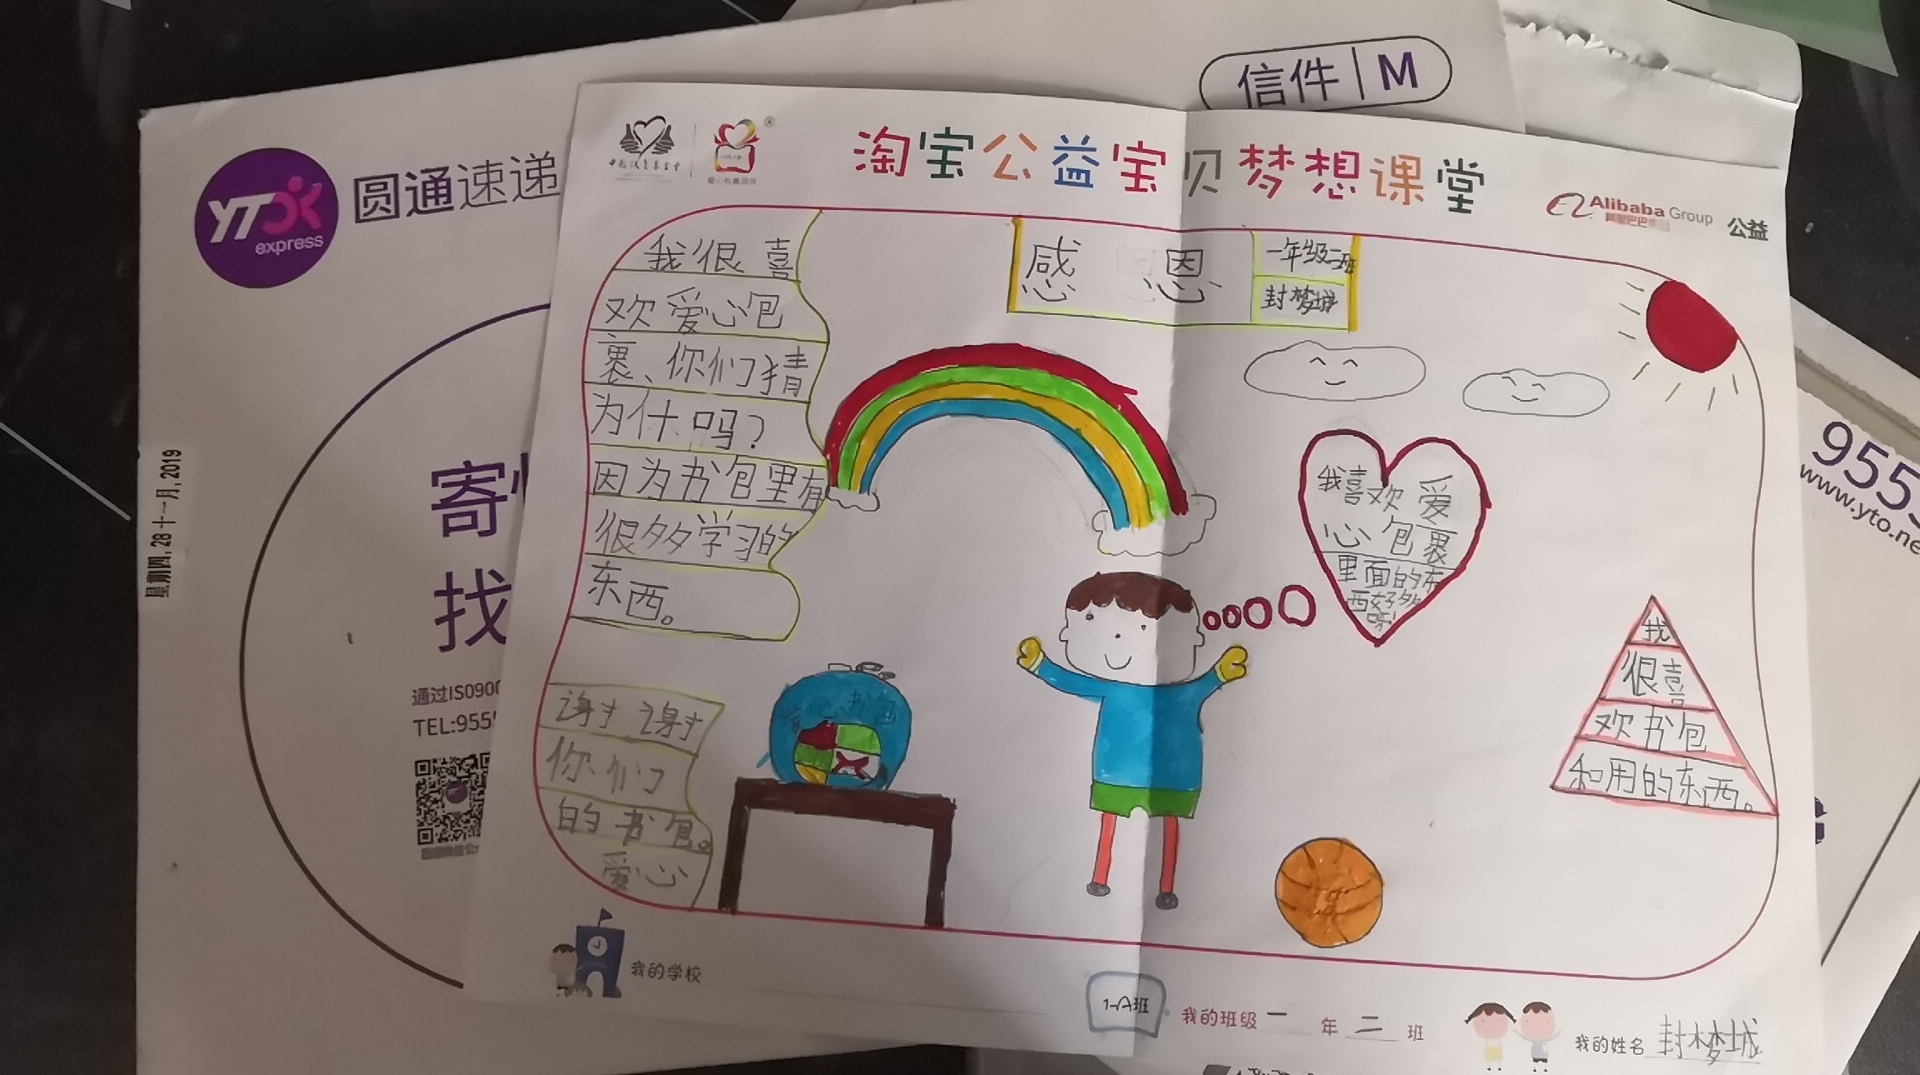 信件 | M
YTO express
圆通速递
淘宝公益宝贝梦想课堂
Alibaba Group 公益
阿里巴巴集团
感恩
一年级二班
封梦城
我很喜
欢爱心包
裹、你们猜
为什吗?
因为书包里有
很多学习的
东西。
我喜欢爱
心包裹
里面的东
西好多
呀!
我
很喜
欢书包
和用的东西。
谢谢
你们
的书包。
爱心
星期四, 28 十一月, 2019
寄
找
通过ISO900
TEL:955
955
www.yto.ne
我的学校
我的班级 一 年 二 班
我的姓名 封梦城